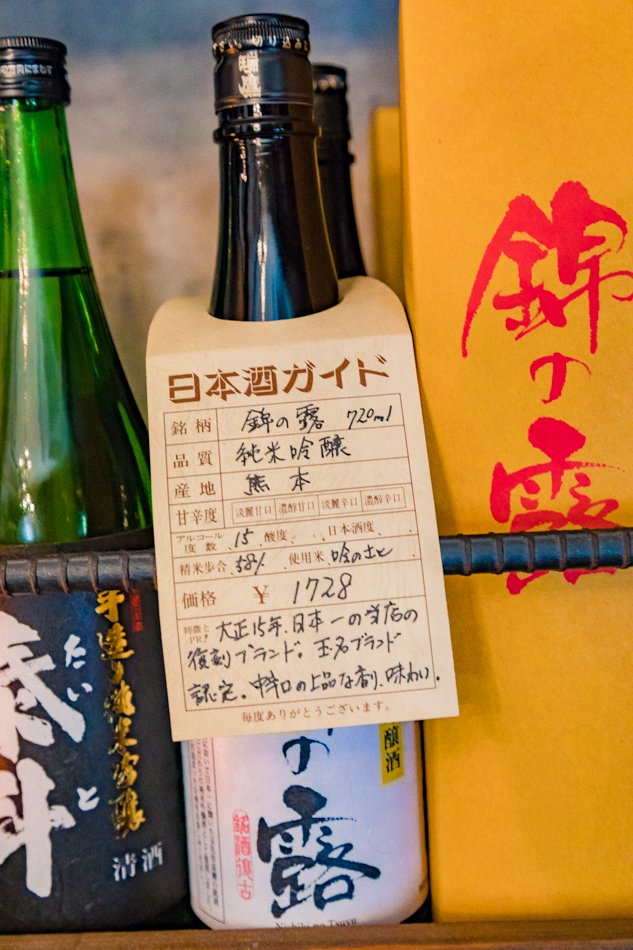 日本酒ガイド
銘柄 錦の露 720ml
品質 純米吟醸
産地 熊本
甘辛度 淡麗甘口 濃醇甘口 淡麗辛口 濃醇辛口
アルコール度数 15 酸度 日本酒度
精米歩合 58% 使用米 吟のさと
価格 ¥ 1728
特徴とPR! 大正15年、日本一の当店の
復刻ブランド。玉名ブランド
認定。中辛口の上品な香り、味わい。
毎度ありがとうございます。
錦の露
の露
銘酒復古
醸酒
Nishiki no Tsuyu
手造り純米吟醸
泰斗
たいと
清酒